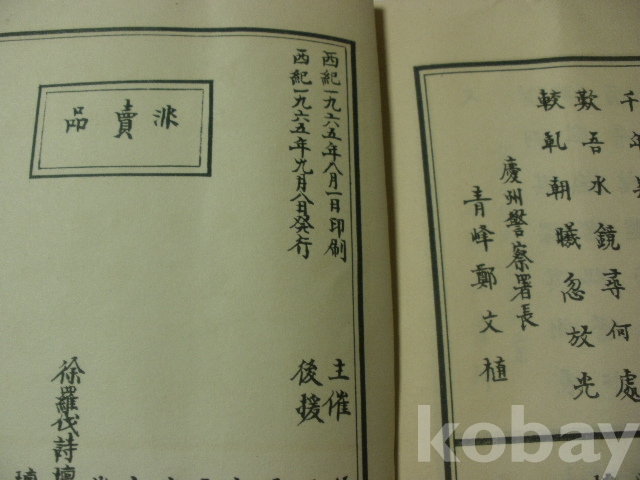 千
歎吾水鏡尋何處
較軋朝曦忽放光
慶州警察署長
青峰鄭文植
西紀一九六五年八月一日印刷
西紀一九六五年九月八日発行
主催
後援
非賣品
徐羅伐詩壇
kobay